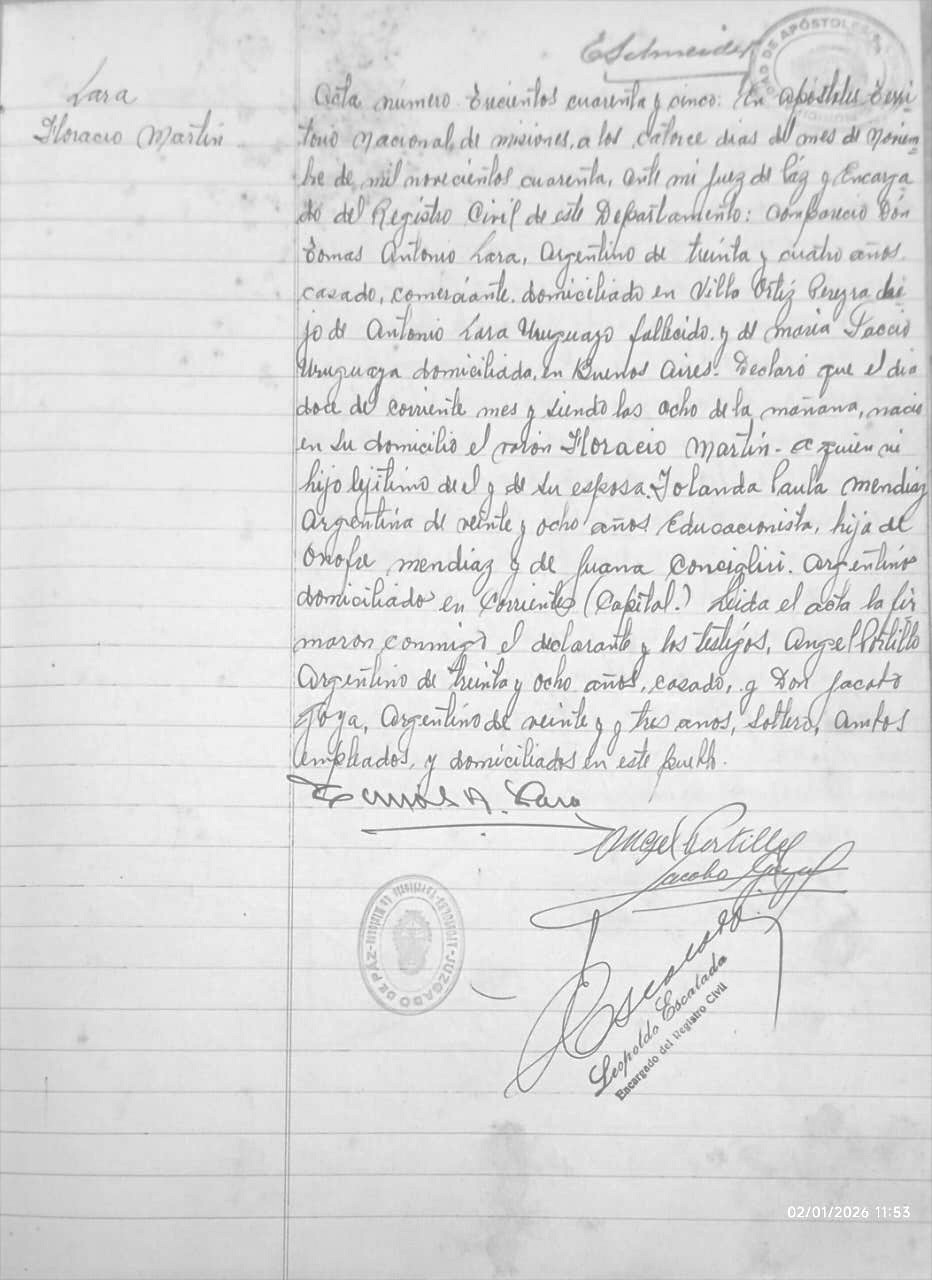 ESchneider
JUZGADO DE APÓSTOLES
Lara
Horacio Martín
Acta número Trecientos cuarenta y cinco: En Apóstoles Terri
torio Nacional, de misiones, a los catorce dias del mes de Noviem=
bre de mil novecientos cuarenta, ante mi Juez de Páz y Encarga
do del Registro Civil de este Departamento: Compareció Dón
Tomas Antonio Lara, Argentino de treinta y cuatro años.
casado, comerciante. domiciliado en Villa Ortiz Pereyra
jo de Antonio Lara Uruguayo fallecido. y de maria
Uruguaya domiciliada, en Buenos Aires. Declaró que el dia
doce del corriente mes y siendo las ocho de la mañana, nacio
en su domicilio el varón Horacio Martín - a quien
hijo lejitimo de el y de su esposa. Yolanda Paula Mendiaz
Argentina de veinte y ocho años Educacionista, hija de
Onofre mendiaz y de Juana Conciglieri. Argentinos
domiciliado en Corrientes (Capital.) Leida el acta la fir
maron conmigo el declarante y los testigos, Angel Portillo
Argentino de treinta y ocho años, casado, y Don Jacobo
Goya, Argentino de veinte y y tres anos, soltero, ambos
empleados, y domiciliados en este pueblo.
Tomas A. Lara
Angel Portillo
Jacobo
JUZGADO DE PÁZ
LEscalada
Leopoldo Escalada
Encargado del Registro Civil
02/01/2026 11:53